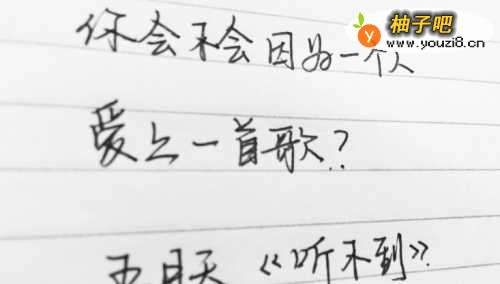 柚子吧
www.youzi8.cn
你会不会因为一个人
爱上一首歌？
五月天《听不到》